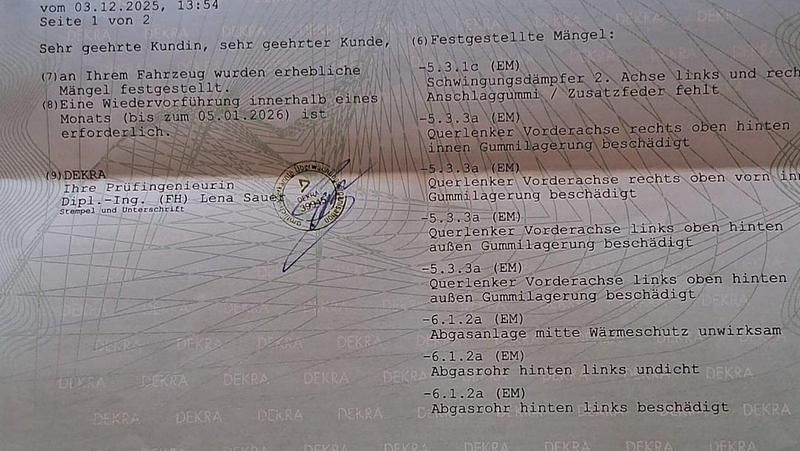 vom 03.12.2025, 13:54
Seite 1 von 2
Sehr geehrte Kundin, sehr geehrter Kunde,
(7) an Ihrem Fahrzeug wurden erhebliche
Mängel festgestellt.
(8) Eine Wiedervorführung innerhalb eines
Monats (bis zum 05.01.2026) ist
erforderlich.
(9) DEKRA
Ihre Prüfingenieurin
Dipl.-Ing. (FH) Lena Sauer
Stempel und Unterschrift
DEKRA
(6) Festgestellte Mängel:
-5.3.1c (EM)
Schwingungsdämpfer 2. Achse links und rech
Anschlaggummi / Zusatzfeder fehlt
-5.3.3a (EM)
Querlenker Vorderachse rechts oben hinten
innen Gummilagerung beschädigt
-5.3.3a (EM)
Querlenker Vorderachse rechts oben vorn in
Gummilagerung beschädigt
-5.3.3a (EM)
Querlenker Vorderachse links oben hinten
außen Gummilagerung beschädigt
-5.3.3a (EM)
Querlenker Vorderachse links oben hinten
außen Gummilagerung beschädigt
-6.1.2a (EM)
Abgasanlage mitte Wärmeschutz unwirksam
-6.1.2a (EM)
Abgasrohr hinten links undicht
-6.1.2a (EM)
Abgasrohr hinten links beschädigt